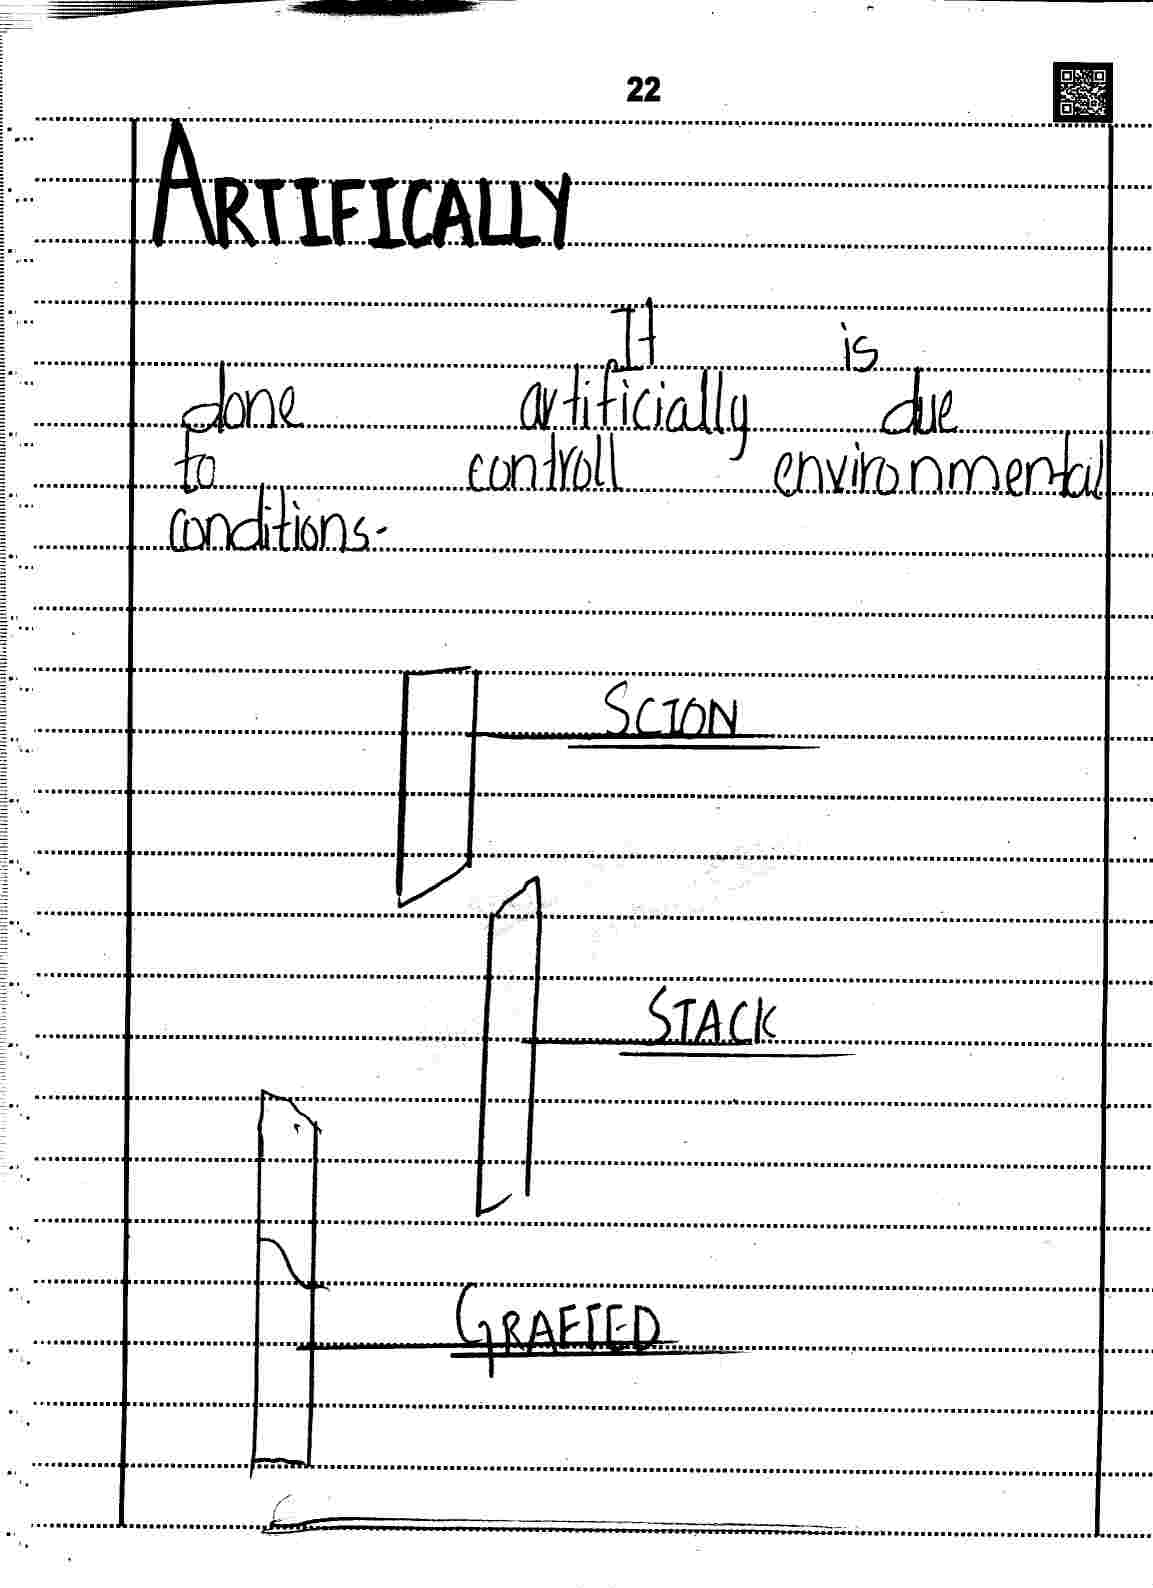 22
ARTIFICALLY
It is
done artificially due
to controll environmental
conditions.
SCION
STACK
GRAFTED